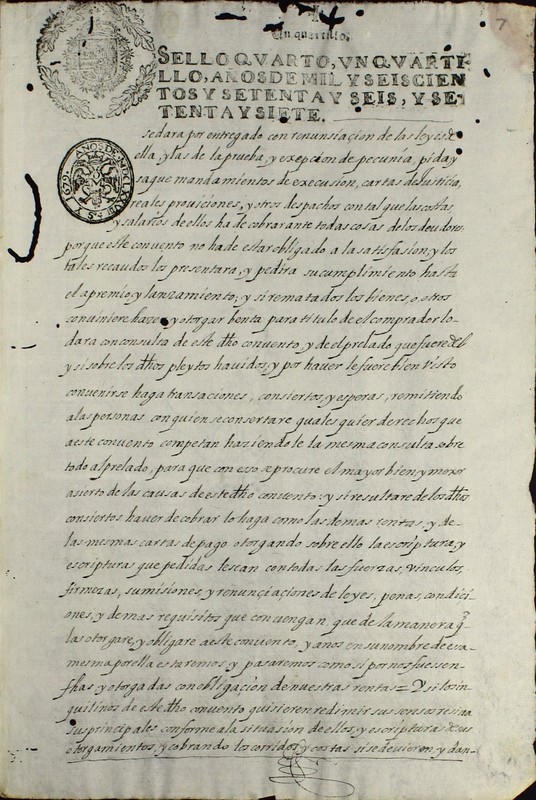 7
Un quartillo.
SELLO QVARTO, VN QVARTI-
LLO, AÑOS DE MIL Y SEISCIEN
TOS Y SETENTA Y SEIS, Y SE-
TENTA Y SIETE.
se dara por entregado con renunsiaçion de las leyes de
ella, y las de la prueba, y exepcion de pecunia, pida y
saque mandamientos de execusion, cartas de Justicia,
reales proviciones, y otros despachos con tal que las costas
y salarios de ellos ha de cobrar ante todas cosas de los deudores
porque este convento no ha de estar obligado a la satisfasion; y los
tales recaudos los presentara, y pedira su cumplimiento hasta
el apremio, y lanzamiento; y si rematados los bienes, o otros
conviniere hazer y otorgar benta para titulo de el comprador lo
dara con consulta de este dho convento, y de el prelado que fuere del
y si sobre los dhos pleytos havidos, y por haver le fuere bien visto
convenirse haga transaciones, consiertos, y esperas, remitiendo
a las personas con quien se consertare quales quier derechos que
a este convento competan haziendole la mesma consulta sobre
todo al prelado, para que con eso se procure el mayor bien, y mexor
asierto de las causas de este dho convento: y si resultare de los dhos
consiertos haver de cobrar lo haga como las demas rentas, y de
las mesmas cartas de pago otorgando sobre ello la escriptura, y
escripturas que pedidas le sean con todas las fuerzas, vinculos,
firmezas, sumisiones, y renunçiaciones de leyes, penas, condici-
ones, y demas requisitos que convengan, que de la manera q
las otorgare, y obligare a este convento, y a nos en su nombre de esa
mesma por ella estaremos y pasaremos como si por nos fuesen
fhas y otorgadas con obligacion de nuestras rentas = Y si los in-
quilinos de este dho convento quisieren redimir sus sensos
sus principales conforme a la situasion de ellos, y escripturas de sus
otorgamientos, y cobrando los corridos y costas si se devieren y dan-